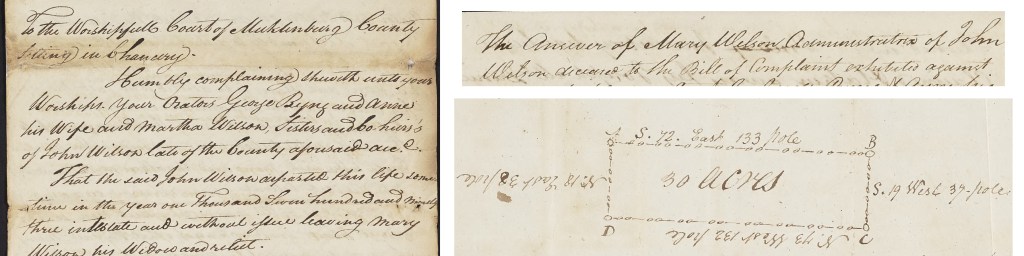 To the Worshipfull Court of Mecklenburg County
sitting in Chancery.
Humbly complaining sheweth unto your
Worships. Your Orators George Byng and Anne
his Wife and Martha Wilson Sisters and Co-heirs's
of John Wilson late of the County aforesaid dec.d
That the said John Wilson departed this life some
time in the year one Thousand Seven hundred and ninety
three intestate and without issue leaving Mary
Wilson his Widow and relict.
The Answer of Mary Wilson Administratrix of John
Wilson deceased to the Bill of Complaint exhibited against
A S. 72. East 133 pole B
N. 18 East 38 pole
30 Acres
S. 19 West 37 pole
D N. 73 West 132 pole C